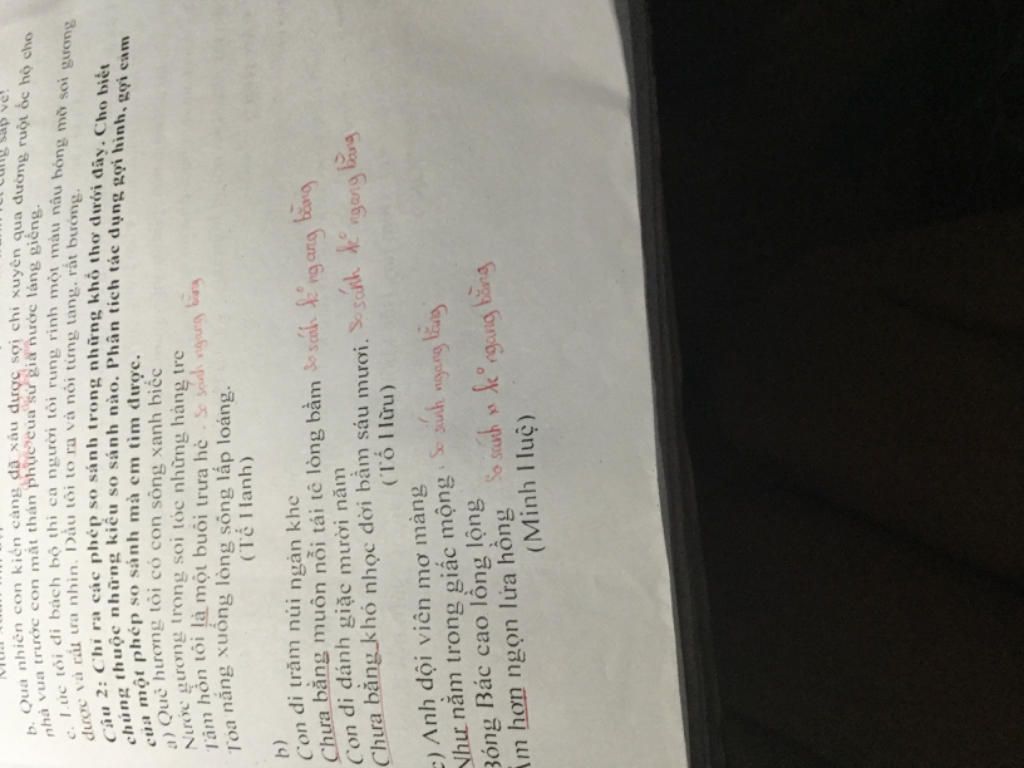 b. Qua nhiên con kiến càng đã xâu được sợi chỉ xuyên qua đường ruột ốc hộ cho
nhà vua trước con mắt thán phục của sứ giả nước láng giềng.
c. Lúc tôi đi bách bộ thì cả người tôi rung rinh một màu nâu bóng mỡ soi gương
được và rất ưa nhìn. Đầu tôi to ra và nổi từng tảng, rất bướng.
Câu 2: Chỉ ra các phép so sánh trong những khổ thơ dưới đây. Cho biết
chúng thuộc những kiểu so sánh nào. Phân tích tác dụng gợi hình, gợi cảm
của một phép so sánh mà em tìm được.
a) Quê hương tôi có con sông xanh biếc
Nước gương trong soi tóc những hàng tre
Tâm hồn tôi là một buổi trưa hè . So sánh ngang bằng
Tỏa nắng xuống lòng sông lấp loáng.
(Tế Hanh)
b)
Con đi trăm núi ngàn khe
Chưa bằng muôn nỗi tái tê lòng bầm So sánh k° ngang bằng
Con đi đánh giặc mười năm
Chưa bằng khó nhọc đời bầm sáu mươi. So sánh k° ngang bằng
(Tố Hữu)
c) Anh đội viên mơ màng
Như nằm trong giấc mộng . So sánh ngang bằng
Bóng Bác cao lồng lộng
Ấm hơn ngọn lửa hồng So sánh k° ngang bằng
(Minh Huệ)